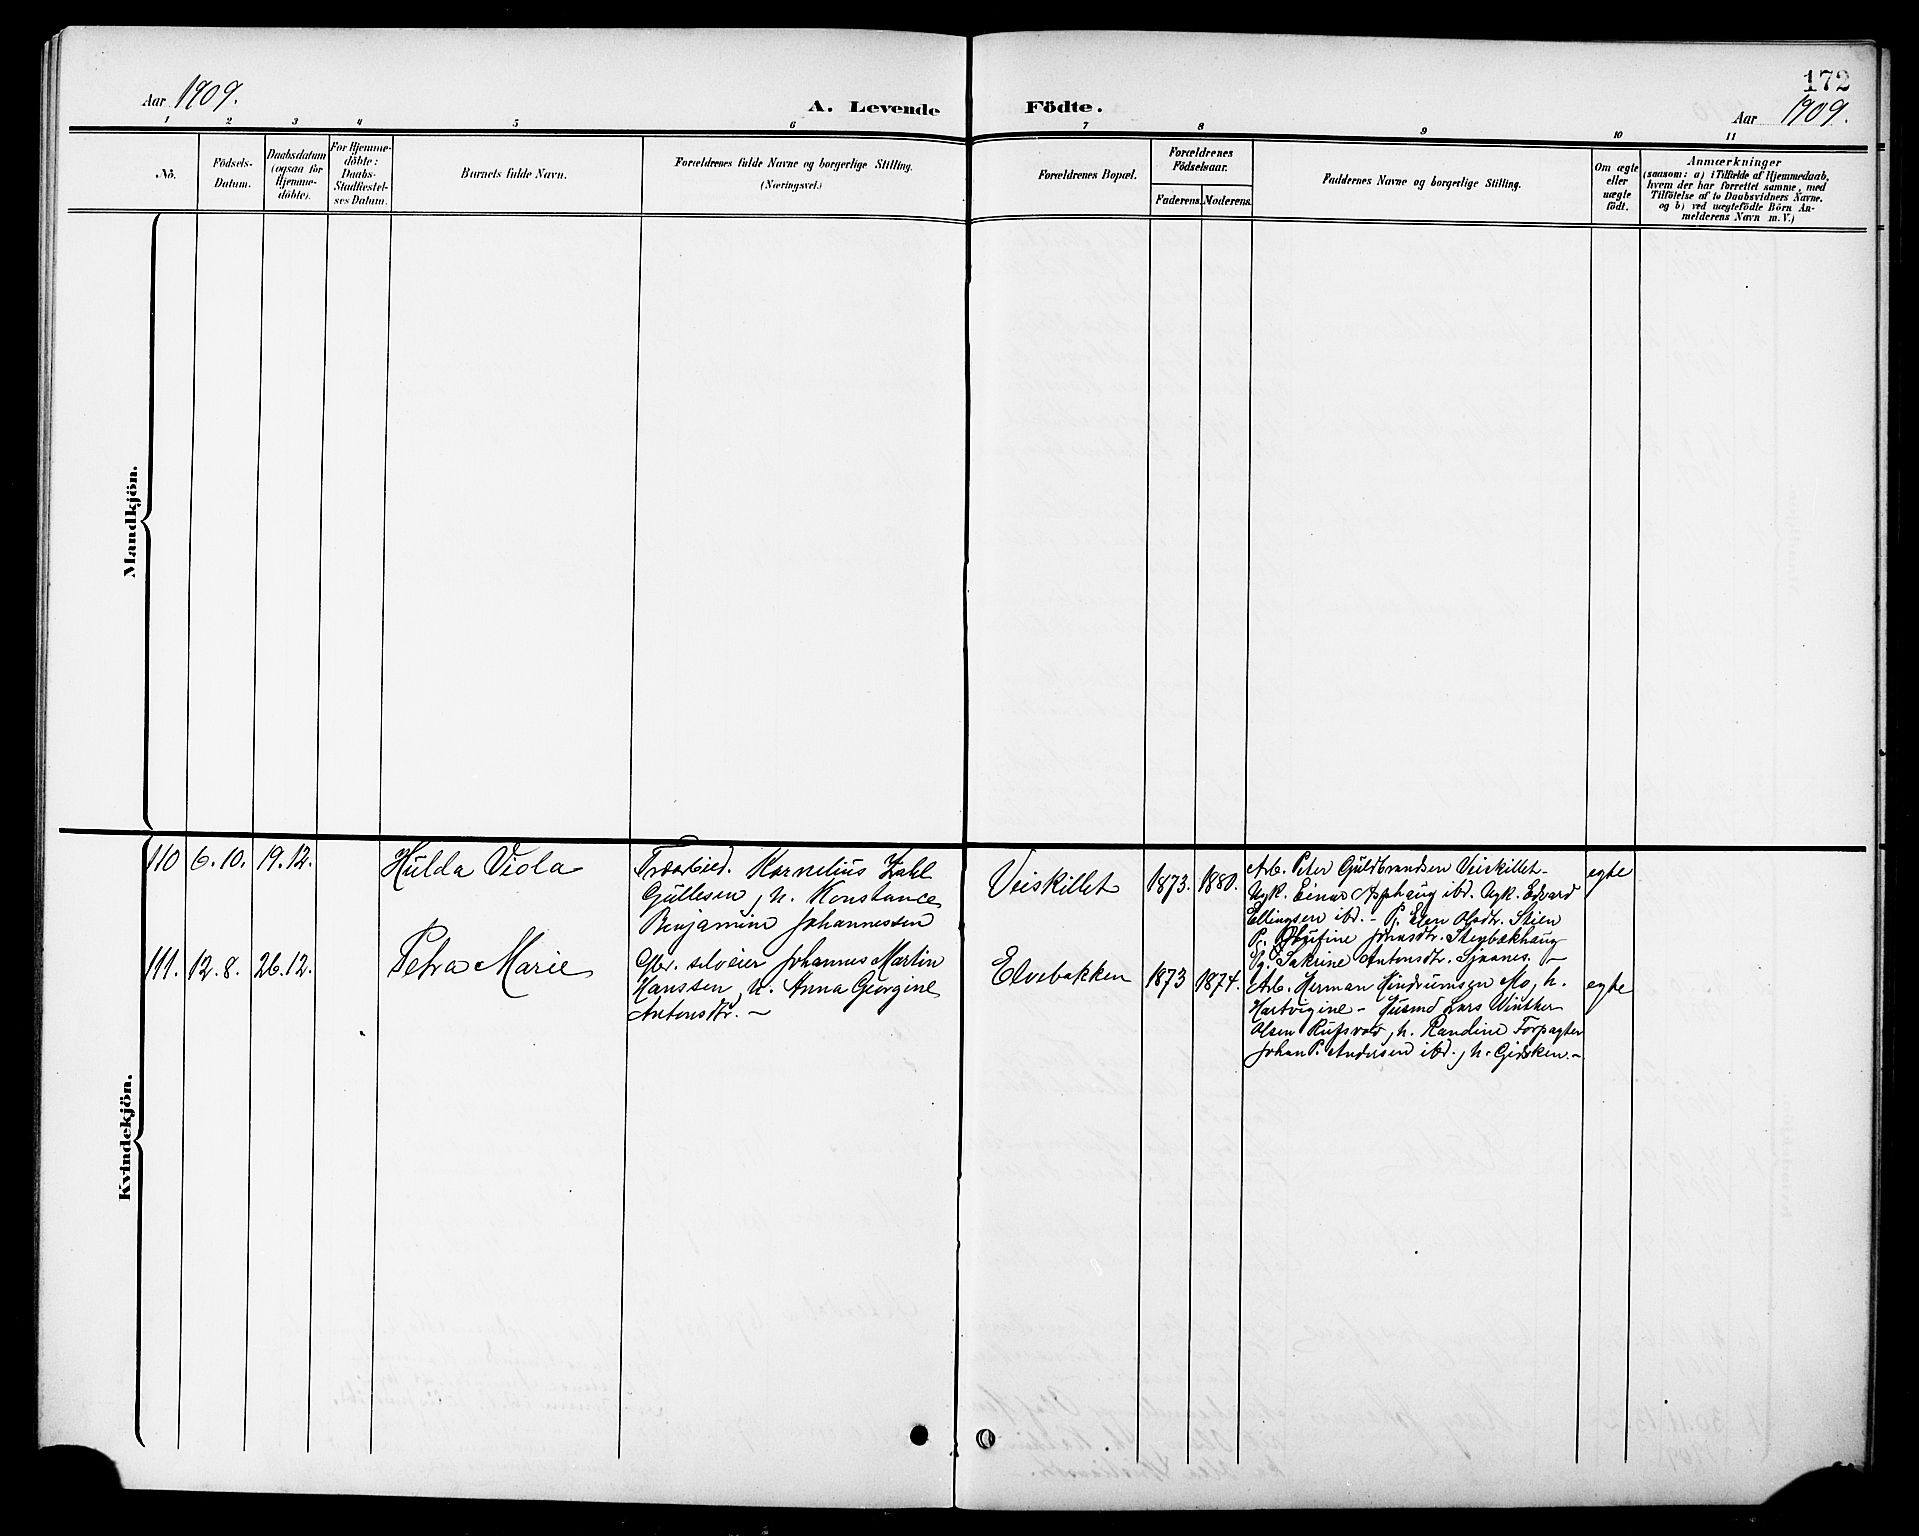 172
Aar 1909.
A. Levende Födte.
Aar 1909.
1 2 3 4 5 6 7 8 9 10 11
No.
Födsels-
Datum.
Daabsdatum
(ogsaa for
Hjemme-
döbte).
For Hjemme-
döbte:
Daabs-
Stadfæstel-
ses Datum.
Barnets fulde Navn.
Forældrenes fulde Navne og borgerlige Stilling.
(Næringsvei.)
Forældrenes Bopæl.
Forældrenes
Födselsaar.
Faderens. Moderens.
Faddernes Navne og borgerlige Stilling.
Om ægte
eller
uægte
födt.
Anmærkninger
(saasom: a) i Tilfælde af Hjemmedaab,
hvem der har forrettet samme, med
Tilföielse af to Daabsvidners Navne,
og b) ved uægtefödte Börn An-
melderens Navn m. V.)
Mandkjön.
Kvindekjön.
110 6.10. 19.12.
Hulda Viola
Træarbied. Kornelius Zahl
Gullesen, h. Konstance
Benjamine Johannessen
Veiskillet
1873. 1880.
Arb. Peter Guldbrandsen Veiskillet-
Ugk. Einar Apphaug ibd. Ugk. Edvard
Ellingsen ibd. - P. Elen Olsdtr. Stien
P. Jonsdtr. Stenbækhaug
Pg. Sakrine Antonsdtr. Sjaanes. -
egte
111. 12.8. 26.12.
Petra Marie
Gbr. selveier Johannes Martin
Hanssen, h. Anna Georgine
Antonsdtr. -
Elvebakken
1873 1874.
Arb. Herman Hindrumsen Mo, h.
Hartvigine - Husmd Lars Winther
Olsen h. Randine Forpagter
Johan P. Andersen ibd., h. Gidsken.-
egte